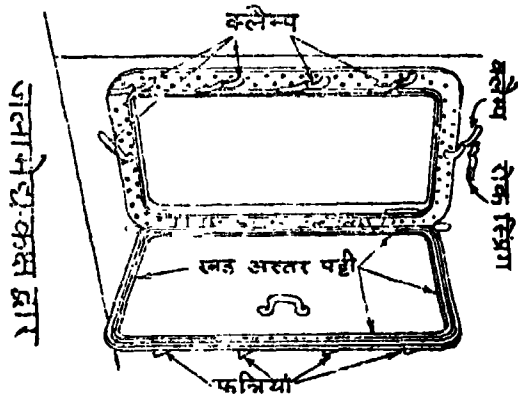 क्लैम्प
क्लैम्प
रोक स्प्रिंग
जलाभेद्य-कक्ष द्वार
रबड़ अस्तर पट्टी
फन्नियां